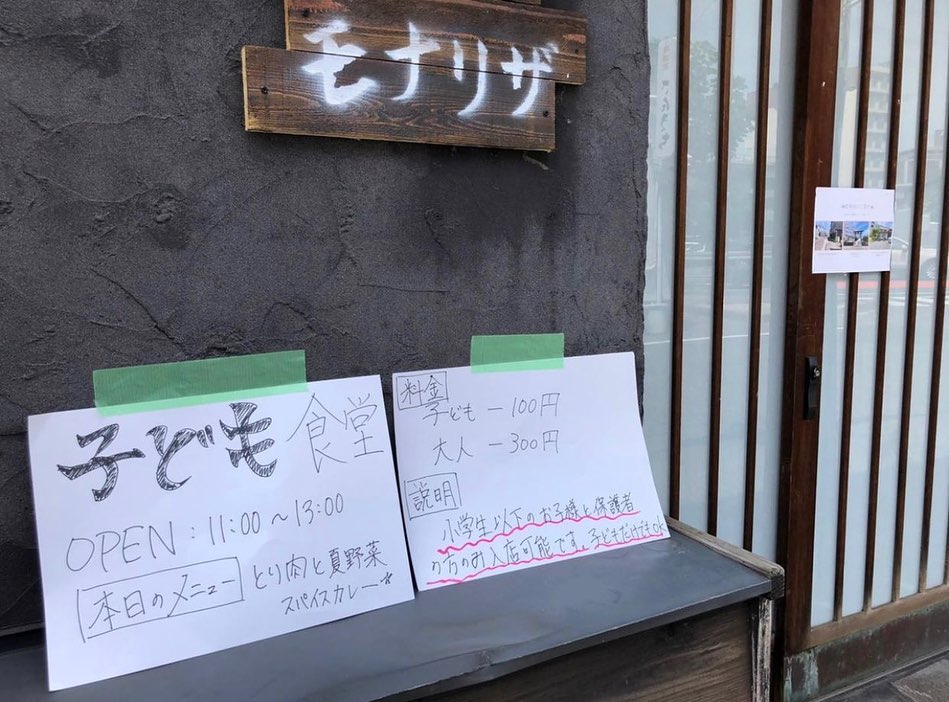 モナリザ
子ども食堂
OPEN：11:00～13:00
本日のメニュー とり肉と夏野菜
スパイスカレー☆
料金
子ども －100円
大人 －300円
説明
小学生以下のお子様と保護者
の方のみ入店可能です。子どもだけでもOK